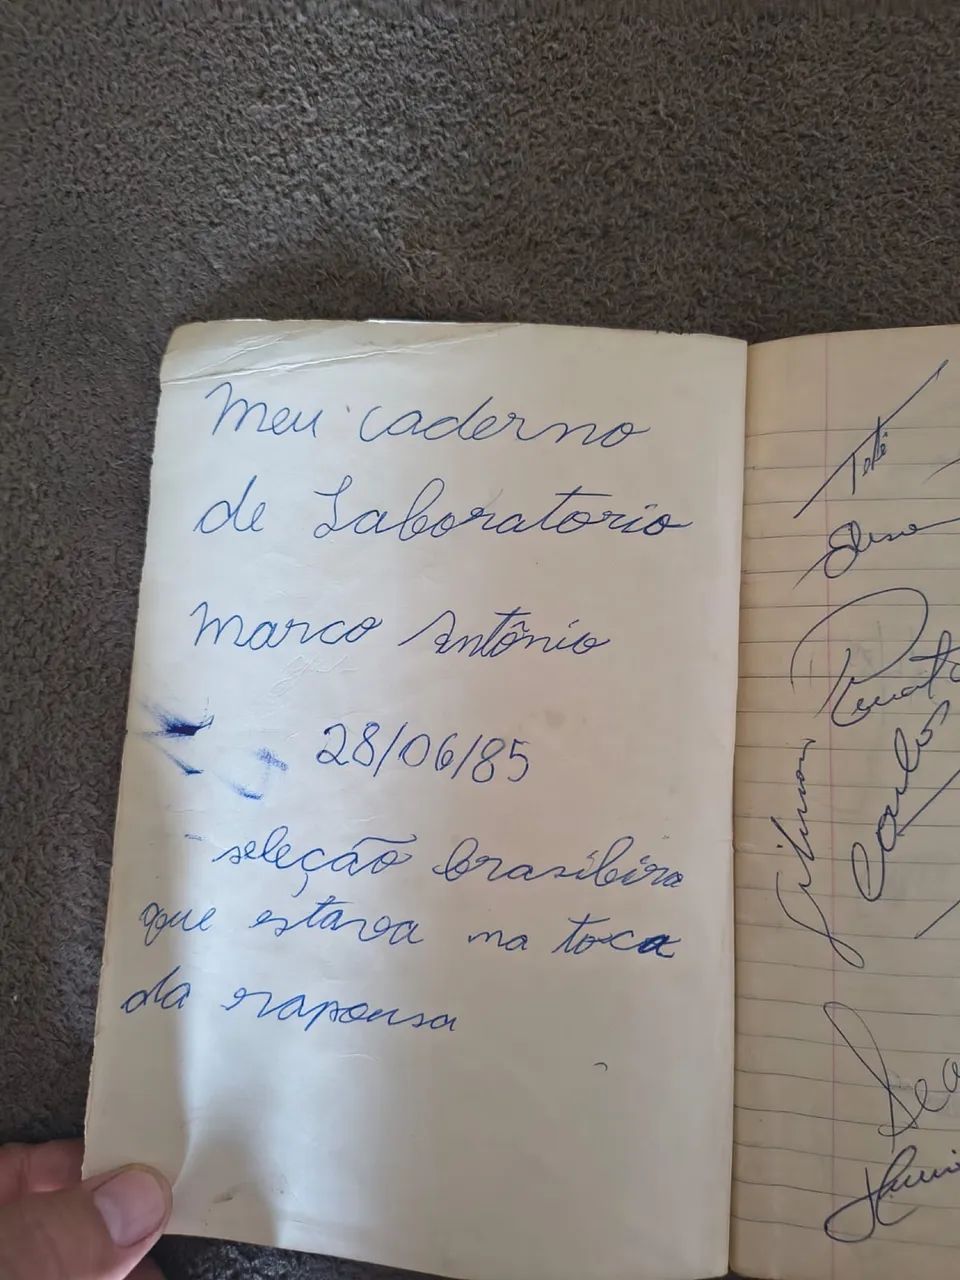 Meu caderno
de Laboratorio
Marco Antônio
28/06/85
- seleção brasileira
que estava na toca
da rapousa
Telê
Renato
Gilmar
Carlos